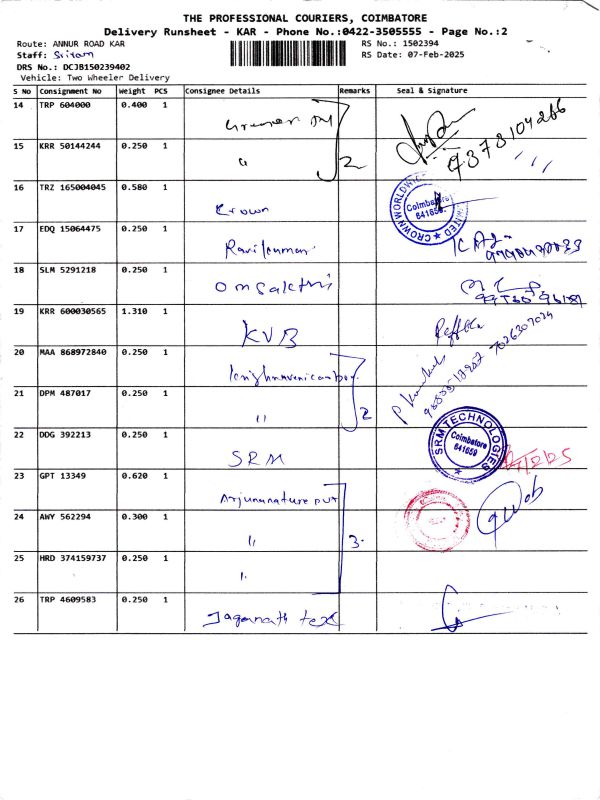 THE PROFESSIONAL COURIERS, COIMBATORE
Delivery Runsheet - KAR - Phone No.:0422-3505555 - Page No.:2
Route: ANNUR ROAD KAR RS No.: 1502394
Staff: Sriram RS Date: 07-Feb-2025
DRS No.: DCJB150239402
Vehicle: Two Wheeler Delivery
S No Consignment No Weight PCS Consignee Details Remarks Seal & Signature
14 TRP 604000 0.400 1
15 KRR 50144244 0.250 1 " 2
16 TRZ 165004045 0.580 1 Crown CROWN WORLDWIDE Coimbatore 641659. LIMITED
17 EDQ 15064475 0.250 1 Ravikumar
18 SLM 5291218 0.250 1 Om Sakthi
19 KRR 600030565 1.310 1 KVB
20 MAA 868972840 0.250 1
21 DPM 487017 0.250 1 " 2
22 DDG 392213 0.250 1 SRM SRM TECHNOLOGIES Coimbatore 641659
23 GPT 13349 0.620 1 Arjuna nature pur
24 AWY 562294 0.300 1 " 3
25 HRD 374159737 0.250 1 "
26 TRP 4609583 0.250 1 Jagannath tex